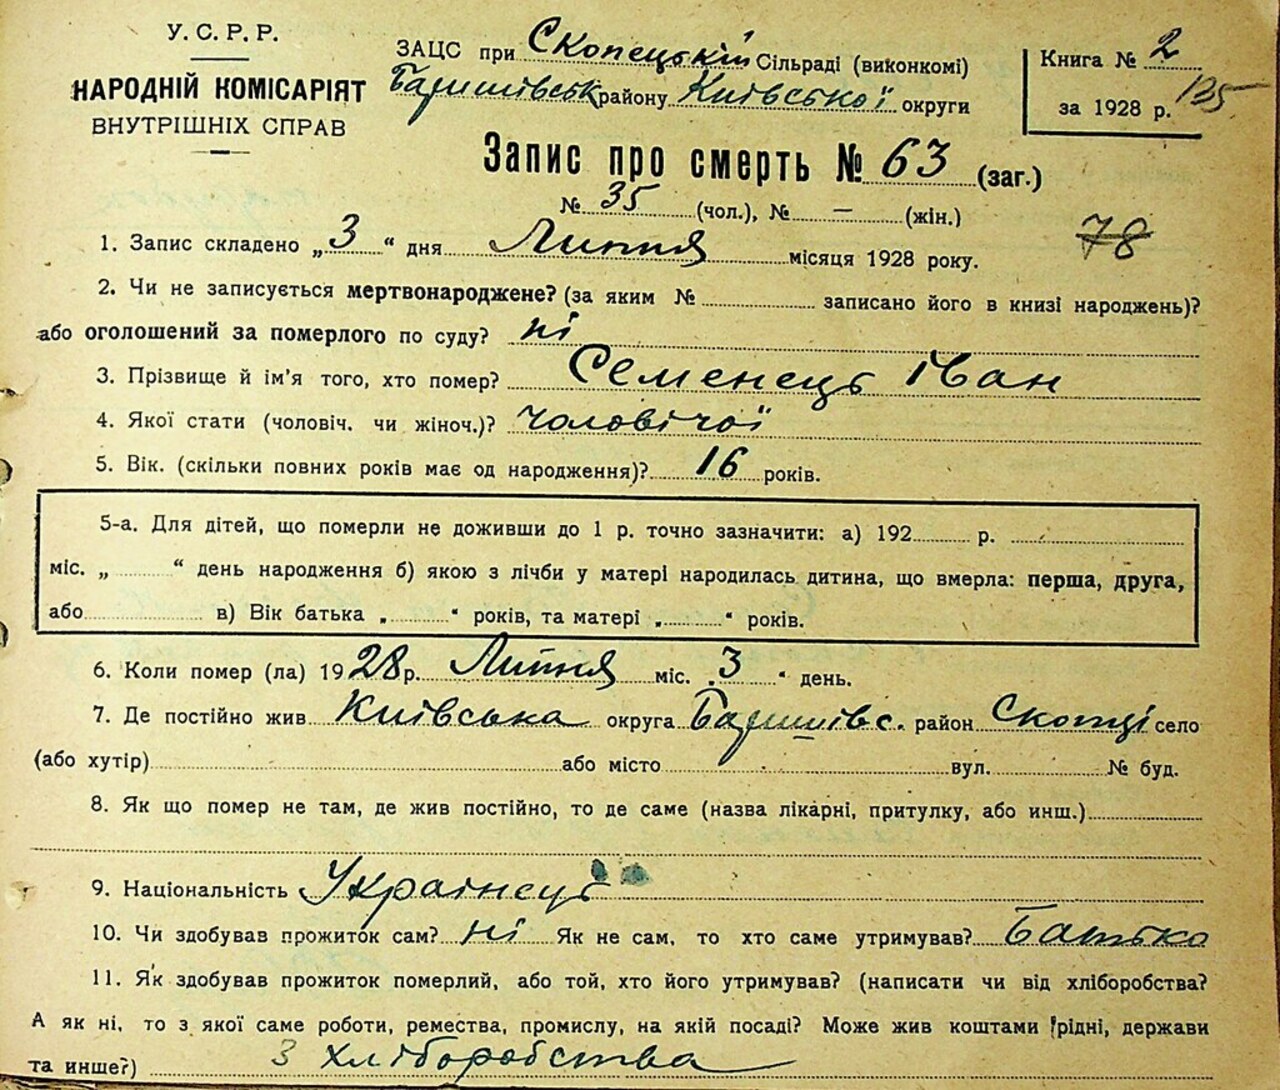 У. С. Р. Р.
НАРОДНІЙ КОМІСАРІЯТ
ВНУТРІШНІХ СПРАВ
ЗАЦС при Скопецькій Сільраді (виконкомі)
Баришівськ району Київської округи
Книга № 2
за 1928 р. 135
Запис про смерть № 63 (заг.)
№ 35 (чол.), № — (жін.)
78
1. Запис складено „3“ дня Липня місяця 1928 року.
2. Чи не записується мертвонароджене? (за яким № записано його в книзі народжень)?
або оголошений за померлого по суду? ні
3. Прізвище й ім'я того, хто помер? Семенець Іван
4. Якої стати (чоловіч. чи жіноч.)? чоловічої
5. Вік. (скільки повних років має од народження)? 16 років.
5-а. Для дітей, що померли не доживши до 1 р. точно зазначити: а) 192 р.
міс. „ “ день народження б) якою з лічби у матері народилась дитина, що вмерла: перша, друга,
або в) Вік батька „ “ років, та матері „ “ років.
6. Коли помер (ла) 1928 р. Липня міс. „3“ день.
7. Де постійно жив Київська округа Баришівс. район Скопці село
(або хутір) або місто вул. № буд.
8. Як що помер не там, де жив постійно, то де саме (назва лікарні, притулку, або инш.)
9. Національність Українець
10. Чи здобував прожиток сам? ні Як не сам, то хто саме утримував? Батько
11. Як здобував прожиток померлий, або той, хто його утримував? (написати чи від хліборобства?
А як ні, то з якої саме роботи, ремества, промислу, на якій посаді? Може жив коштами рідні, держави
та инше?) З хліборобства